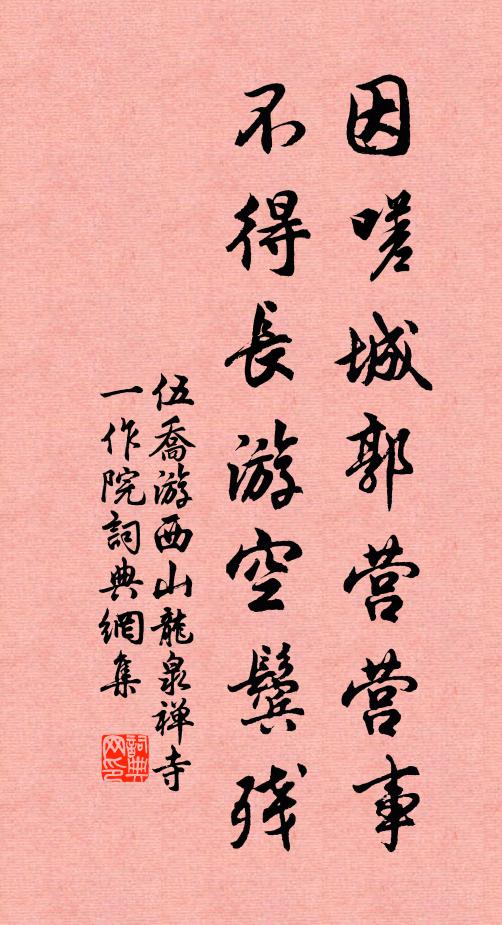 因嗟城郭营营事
不得長游空鬓残
伍喬游西山龍泉禅寺
一作院詞典網集
詞典
网印